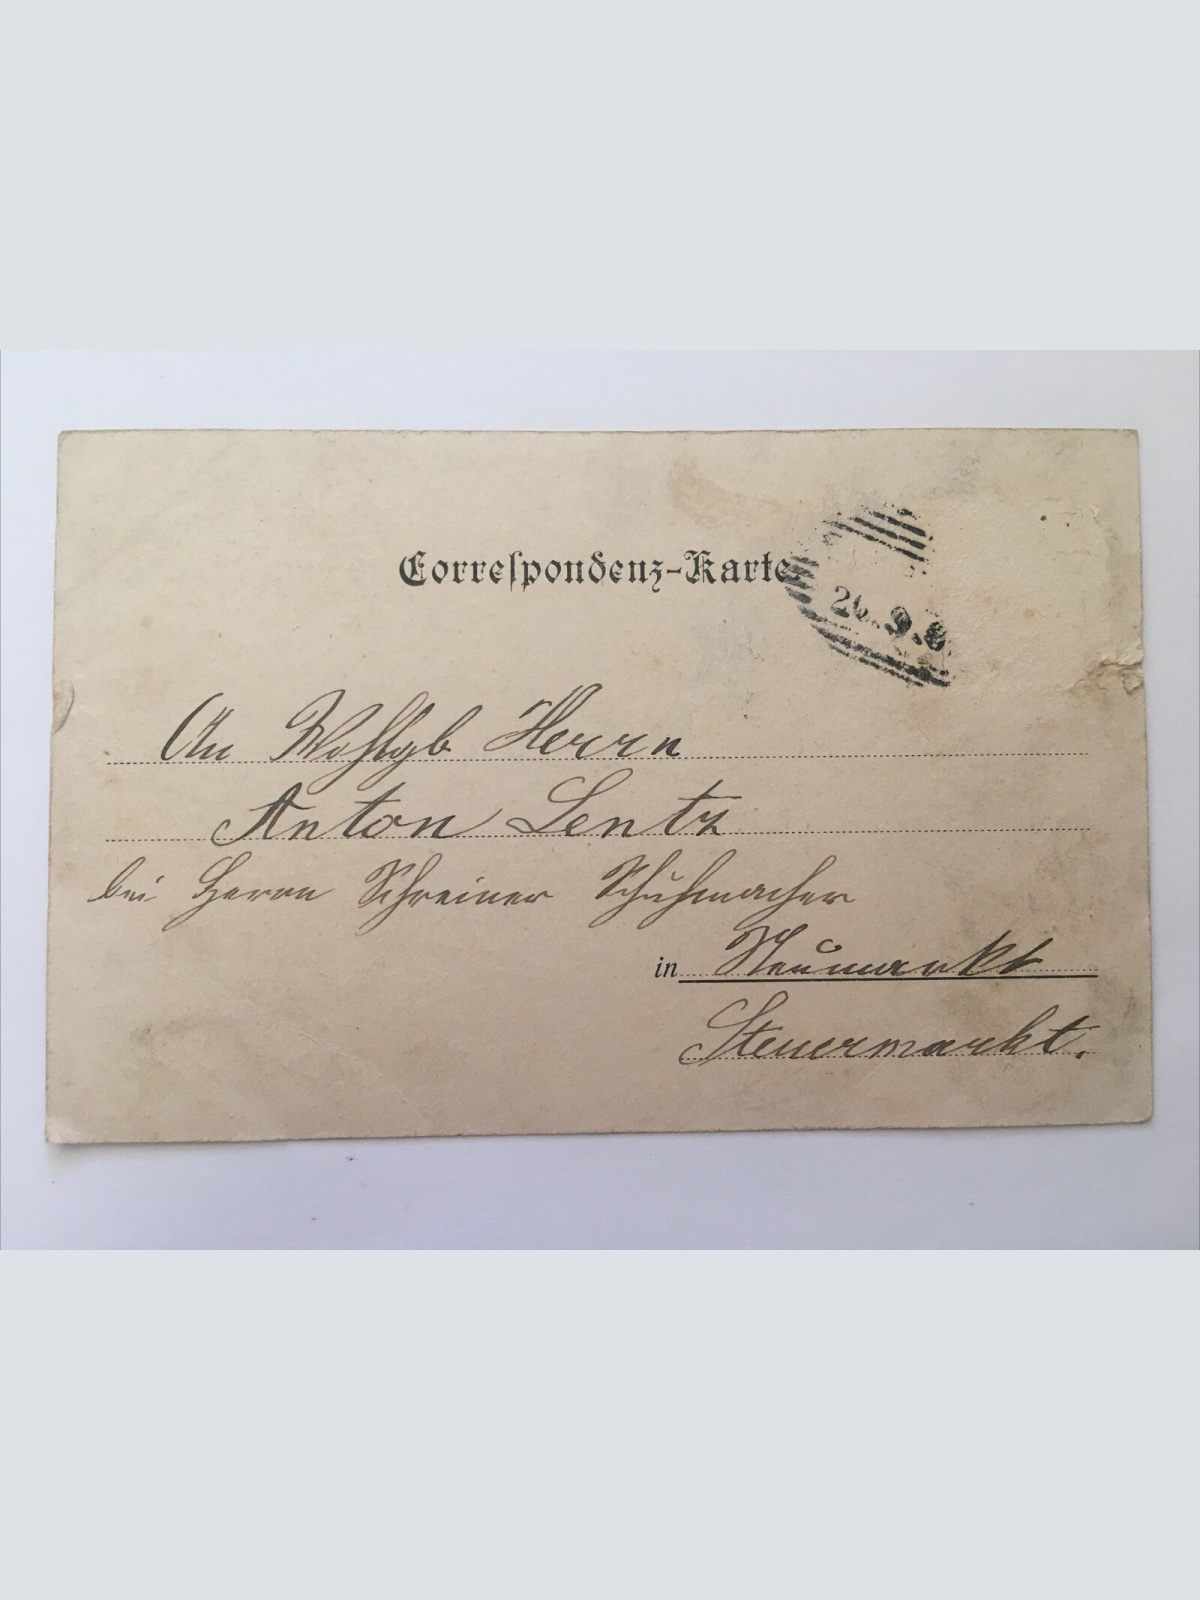 Correſpondenz-Karte
20.9.0
An Wohlgb Herrn
Anton Lentz
bei Herrn Schreiner Schuhmacher
in Neumarkt
Steuermarkt.